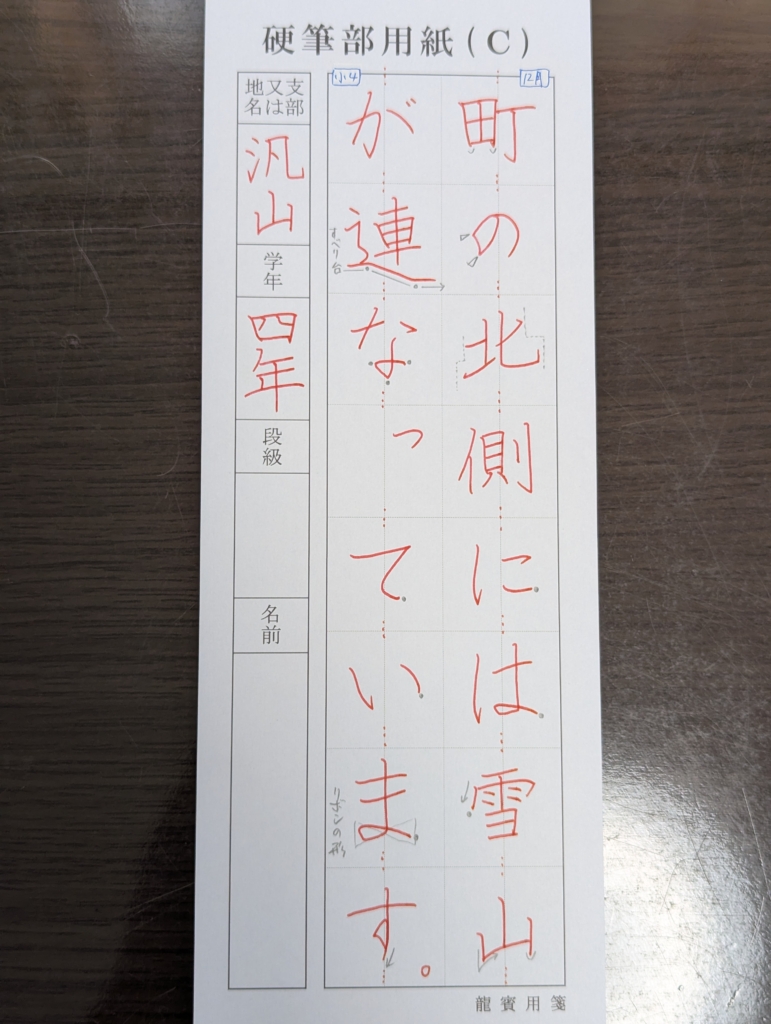 硬筆部用紙(C)
12月
町の北側には雪山
小4
が連なっています。
すべり台
リボンの形
支部又は地名
汎山
学年
四年
段級
名前
龍賓用箋